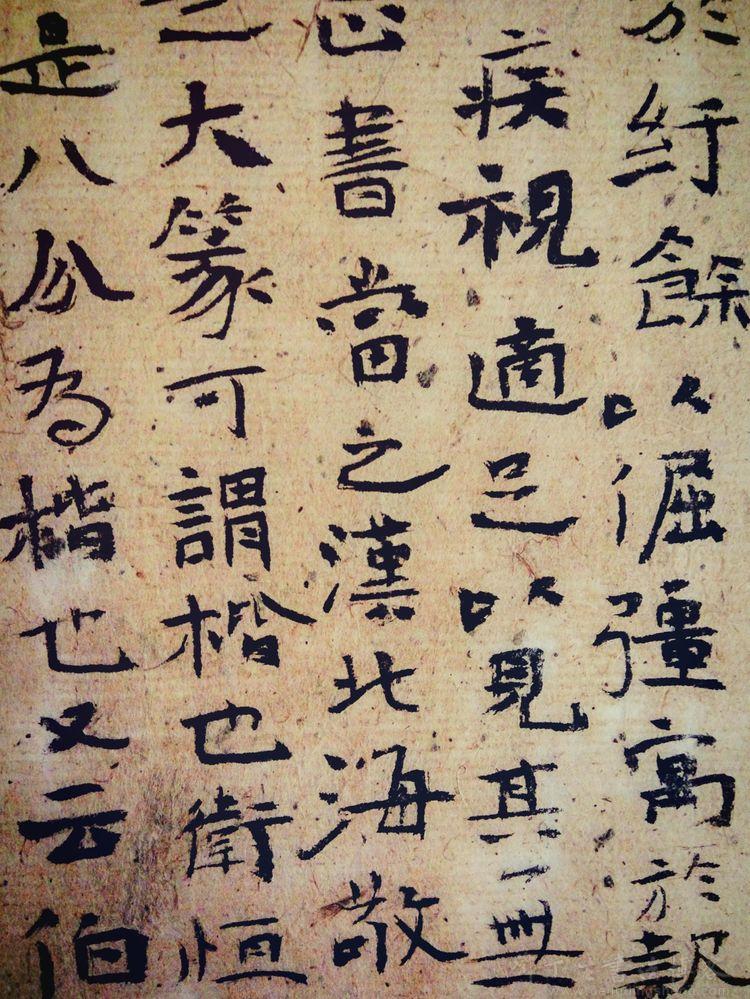 於紆餘以倔彊寓於款
疾視適足以見其無
正書當之漢北海敬
之大篆可謂楷也衛恒
是八分為楷也又云伯